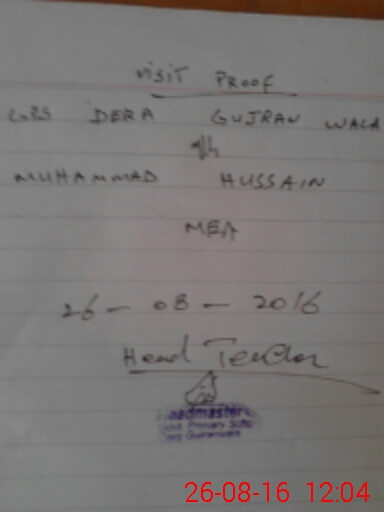 VISIT PROOF
GPS DERA GUJRAN WALA
MUHAMMAD HUSSAIN
MEA
26-08-2016
Head Teacher
eadmaster
Primary Scho
26-08-16 12:04